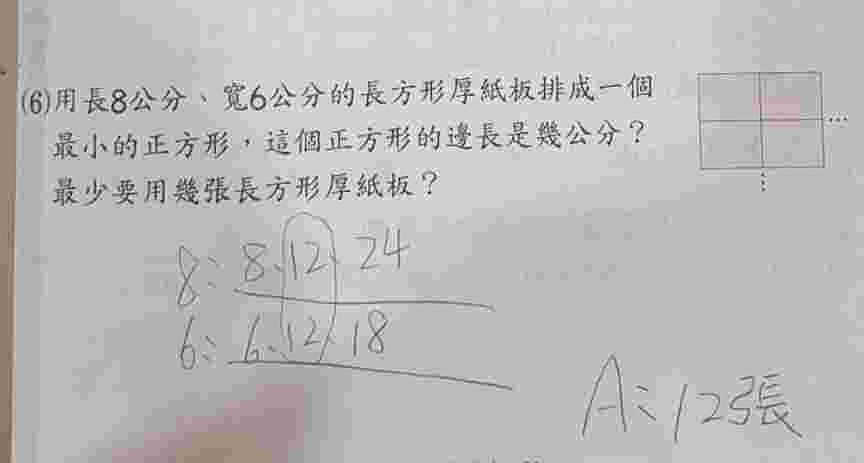 (6)用長8公分、寬6公分的長方形厚紙板排成一個
最小的正方形，這個正方形的邊長是幾公分？
最少要用幾張長方形厚紙板？
8: 8、12、24
6: 6、12、18
A: 12張